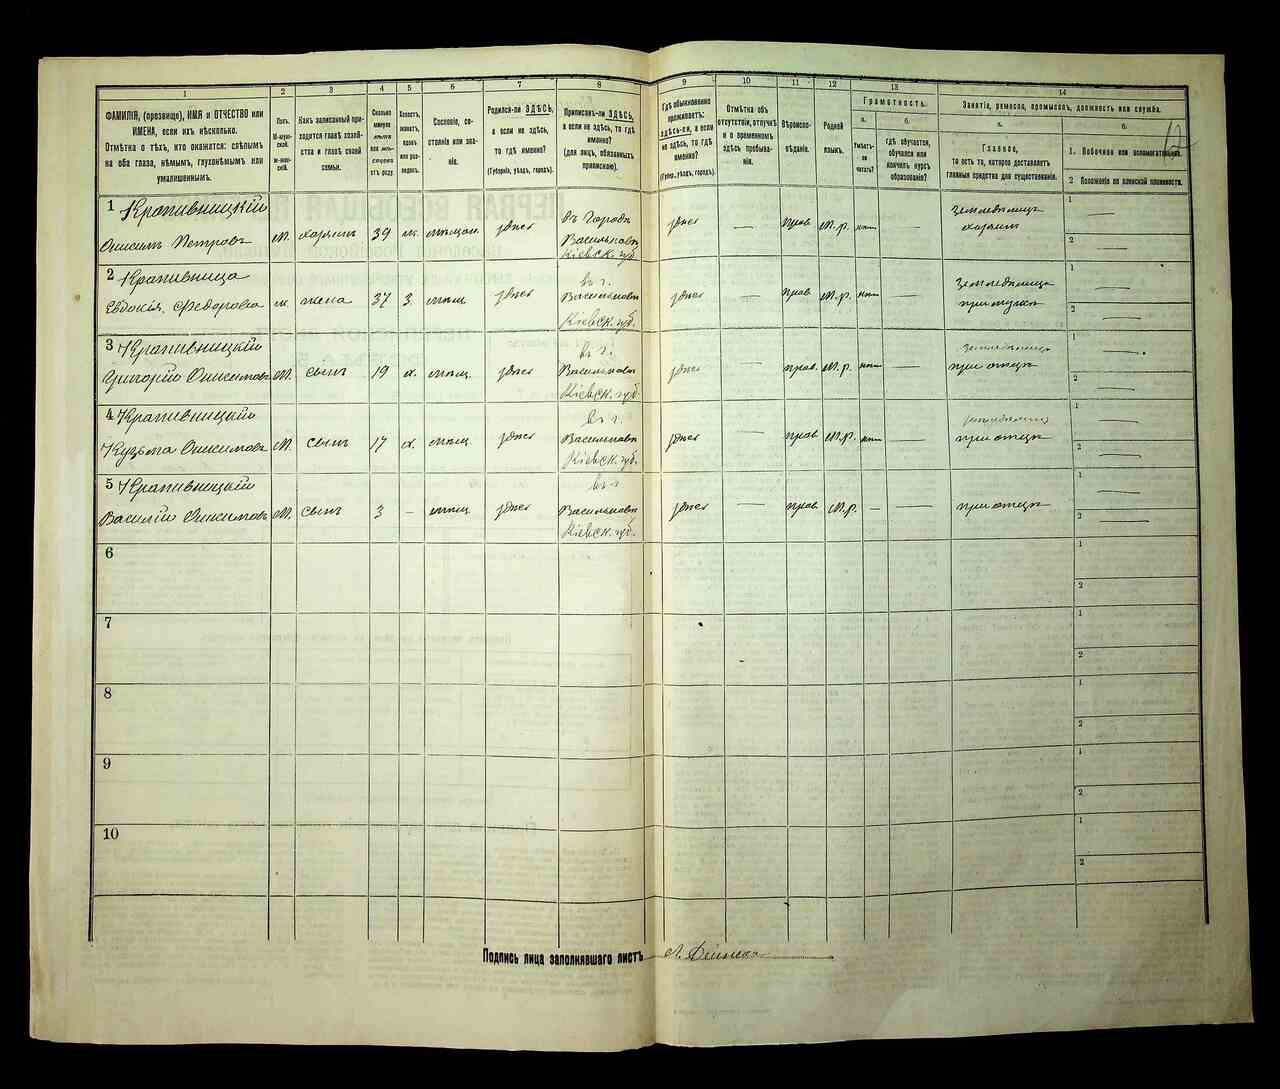 1
2
3
4
5
6
7
8
9
10
11
12
13
14
ФАМИЛІЯ, (прозвище), ИМЯ и ОТЧЕСТВО или
ИМЕНА, если ихъ нѣсколько.
Отмѣтка о тѣхъ, кто окажется: слѣпымъ
на оба глаза, нѣмымъ, глухонѣмымъ или
умалишеннымъ.
Полъ.
М-муж-
ской.
Ж-жен-
скій.
Какъ записанный при-
ходится главѣ хозяй-
ства и главѣ своей
семьи.
Сколько
минуло
лѣтъ
или мѣ-
сяцевъ
отъ роду.
Холостъ,
женатъ,
вдовъ
или раз-
веденъ.
Сословіе, со-
стояніе или зва-
ніе.
Родился-ли ЗДѢСЬ,
а если не здѣсь,
то гдѣ именно?
(Губернія, уѣздъ, городъ).
Приписанъ-ли ЗДѢСЬ,
а если не здѣсь, то гдѣ
именно?
(для лицъ, обязанныхъ
припискою).
Гдѣ обыкновенно
проживаетъ:
здѣсь-ли, а если
не здѣсь, то гдѣ
именно?
(Губерн., уѣздъ, городъ).
Отмѣтка объ
отсутствіи, отлучкѣ
и о временномъ
здѣсь пребыва-
ніи.
Вѣроиспо-
вѣданіе.
Родной
языкъ.
Грамотность.
а.
Умѣетъ-
ли
читать?
б.
Гдѣ обучается,
обучался или
кончилъ курсъ
образованія?
Занятіе, ремесло, промыселъ, должность или служба.
а.
Главное,
то есть то, которое доставляетъ
главныя средства для существованія.
б.
1. Побочное или вспомогательное.
2 Положеніе по воинской повинности.
12
1 Крапивницкій
Онисимъ Петровъ М. хозяинъ 39 ж. мѣщан. здѣсь
въ Городѣ
Васильковѣ
Кіевск. губ.
здѣсь — прав. М.р. —
Земледѣлецъ
хозяинъ
1 —
2 —
2 Крапивница
Евдокія Федоровна ж. жена 37 з. мѣщ. здѣсь
въ г.
Васильковѣ
Кіевск. губ.
здѣсь — прав. М.р. —
Земледѣлица
при мужѣ
1 —
2 —
3 Крапивницкій
Григорій Онисимовъ М. сынъ 19 х. мѣщ. здѣсь
въ г.
Васильковѣ
Кіевск. губ.
здѣсь — прав. М.р. —
земледѣлецъ
при отцѣ
1 —
2 —
4 Крапивницкій
Кузьма Онисимовъ М. сынъ 17 х. мѣщ. здѣсь
въ г.
Васильковѣ
Кіевск. губ.
здѣсь — прав. М.р. —
земледѣлецъ
при отцѣ
1 —
2 —
5 Крапивницкій
Василій Онисимовъ М. сынъ 3 — мѣщ. здѣсь
въ г.
Васильковѣ
Кіевск. губ.
здѣсь — прав. М.р. — —
при отцѣ
1 —
2 —
6
1
2
7
1
2
8
1
2
9
1
2
10
1
2
Подпись лица заполнявшаго листъ